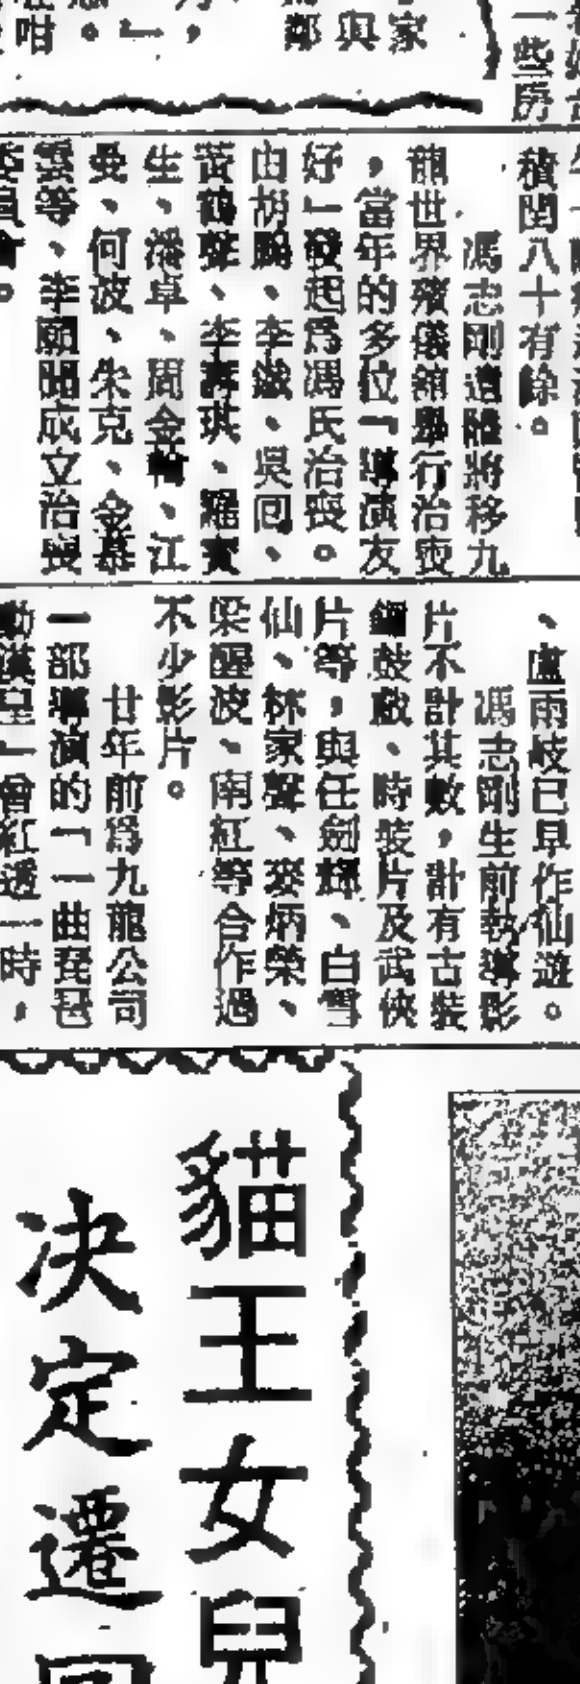 家
與
鄰
一些房
積閏八十有餘。
馮志剛遺體將移九
龍世界殯儀館舉行治喪
，當年的多位「導演友
好」發起爲馮氏治喪。
由胡鵬、李鐵、吳回、
黃鶴聲、李壽琪、羅
生、潘卓、周金輪、江
、何波、朱克、金
雲等、李願聞成立治喪
、盧雨岐已早作仙遊。
馮志剛生前執導影
片不計其數，計有古裝
鑼鼓戲、時裝片及武俠
片等，與任劍輝、白雪
仙、林家聲、麥炳榮、
梁醒波、南紅等合作過
不少影片。
廿年前爲九龍公司
一部導演的「一曲琵琶
動漢皇」曾紅透一時，
貓王女兒
決定遷